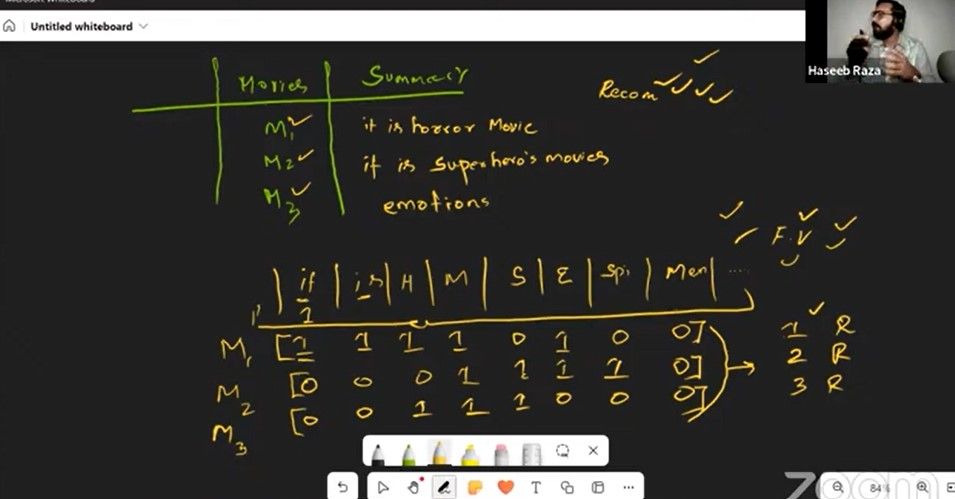 Untitled whiteboard
Haseeb Raza
Movies Summary
Recom
M1 it is horror Movie
M2 it is Superhero's movies
M3 emotions
F.V
it is H M S E Spi Men ....
1
M1 [1 1 1 1 0 1 0 0] 1 R
M2 [0 0 0 1 1 1 1 0] 2 R
M3 [0 0 1 1 1 0 0 0] 3 R
T
zoom
84%